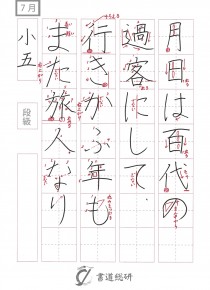 月日は百代の
過客にして
行きかふ年も
また旅人なり
7月
小五
段級
書道総研